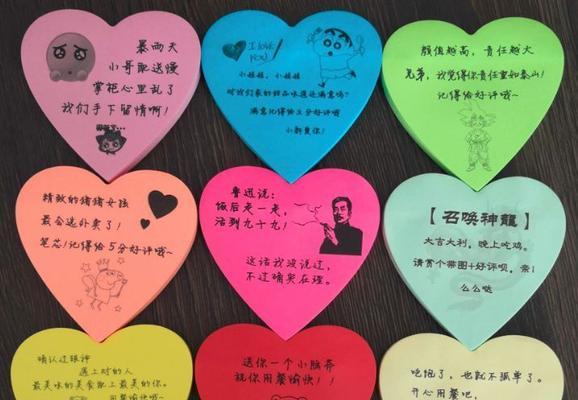 暴雨天
小哥配送慢
掌柜心里乱了
我们手下留情啊!
I LOVE
YOU!
小妹妹,小妹妹
对我们家的甜品味道还满意吗?
满意记得给五分好评哦
小新爱你!
颜值越高,责任越大
兄弟,我觉得你责任重如泰山!
记得给好评哦~
精致的猪猪女孩
最会选外卖了!
笔芯!记得给5分好评哦~
鲁迅说:
饭后走一走,
活到九十九!
这话我没说过,
不过确实在理。
【召唤神龍】
大吉大利,晚上吃鸡。
请赏个带图+好评呗,亲!
么么哒
确认过眼神
遇上对的人
最美味的美食配上最美的你。
用餐愉快哦~
送你一个小脑斧
祝你用餐愉快!!
吃饱了,也就不孤单了。
开心用餐吧,